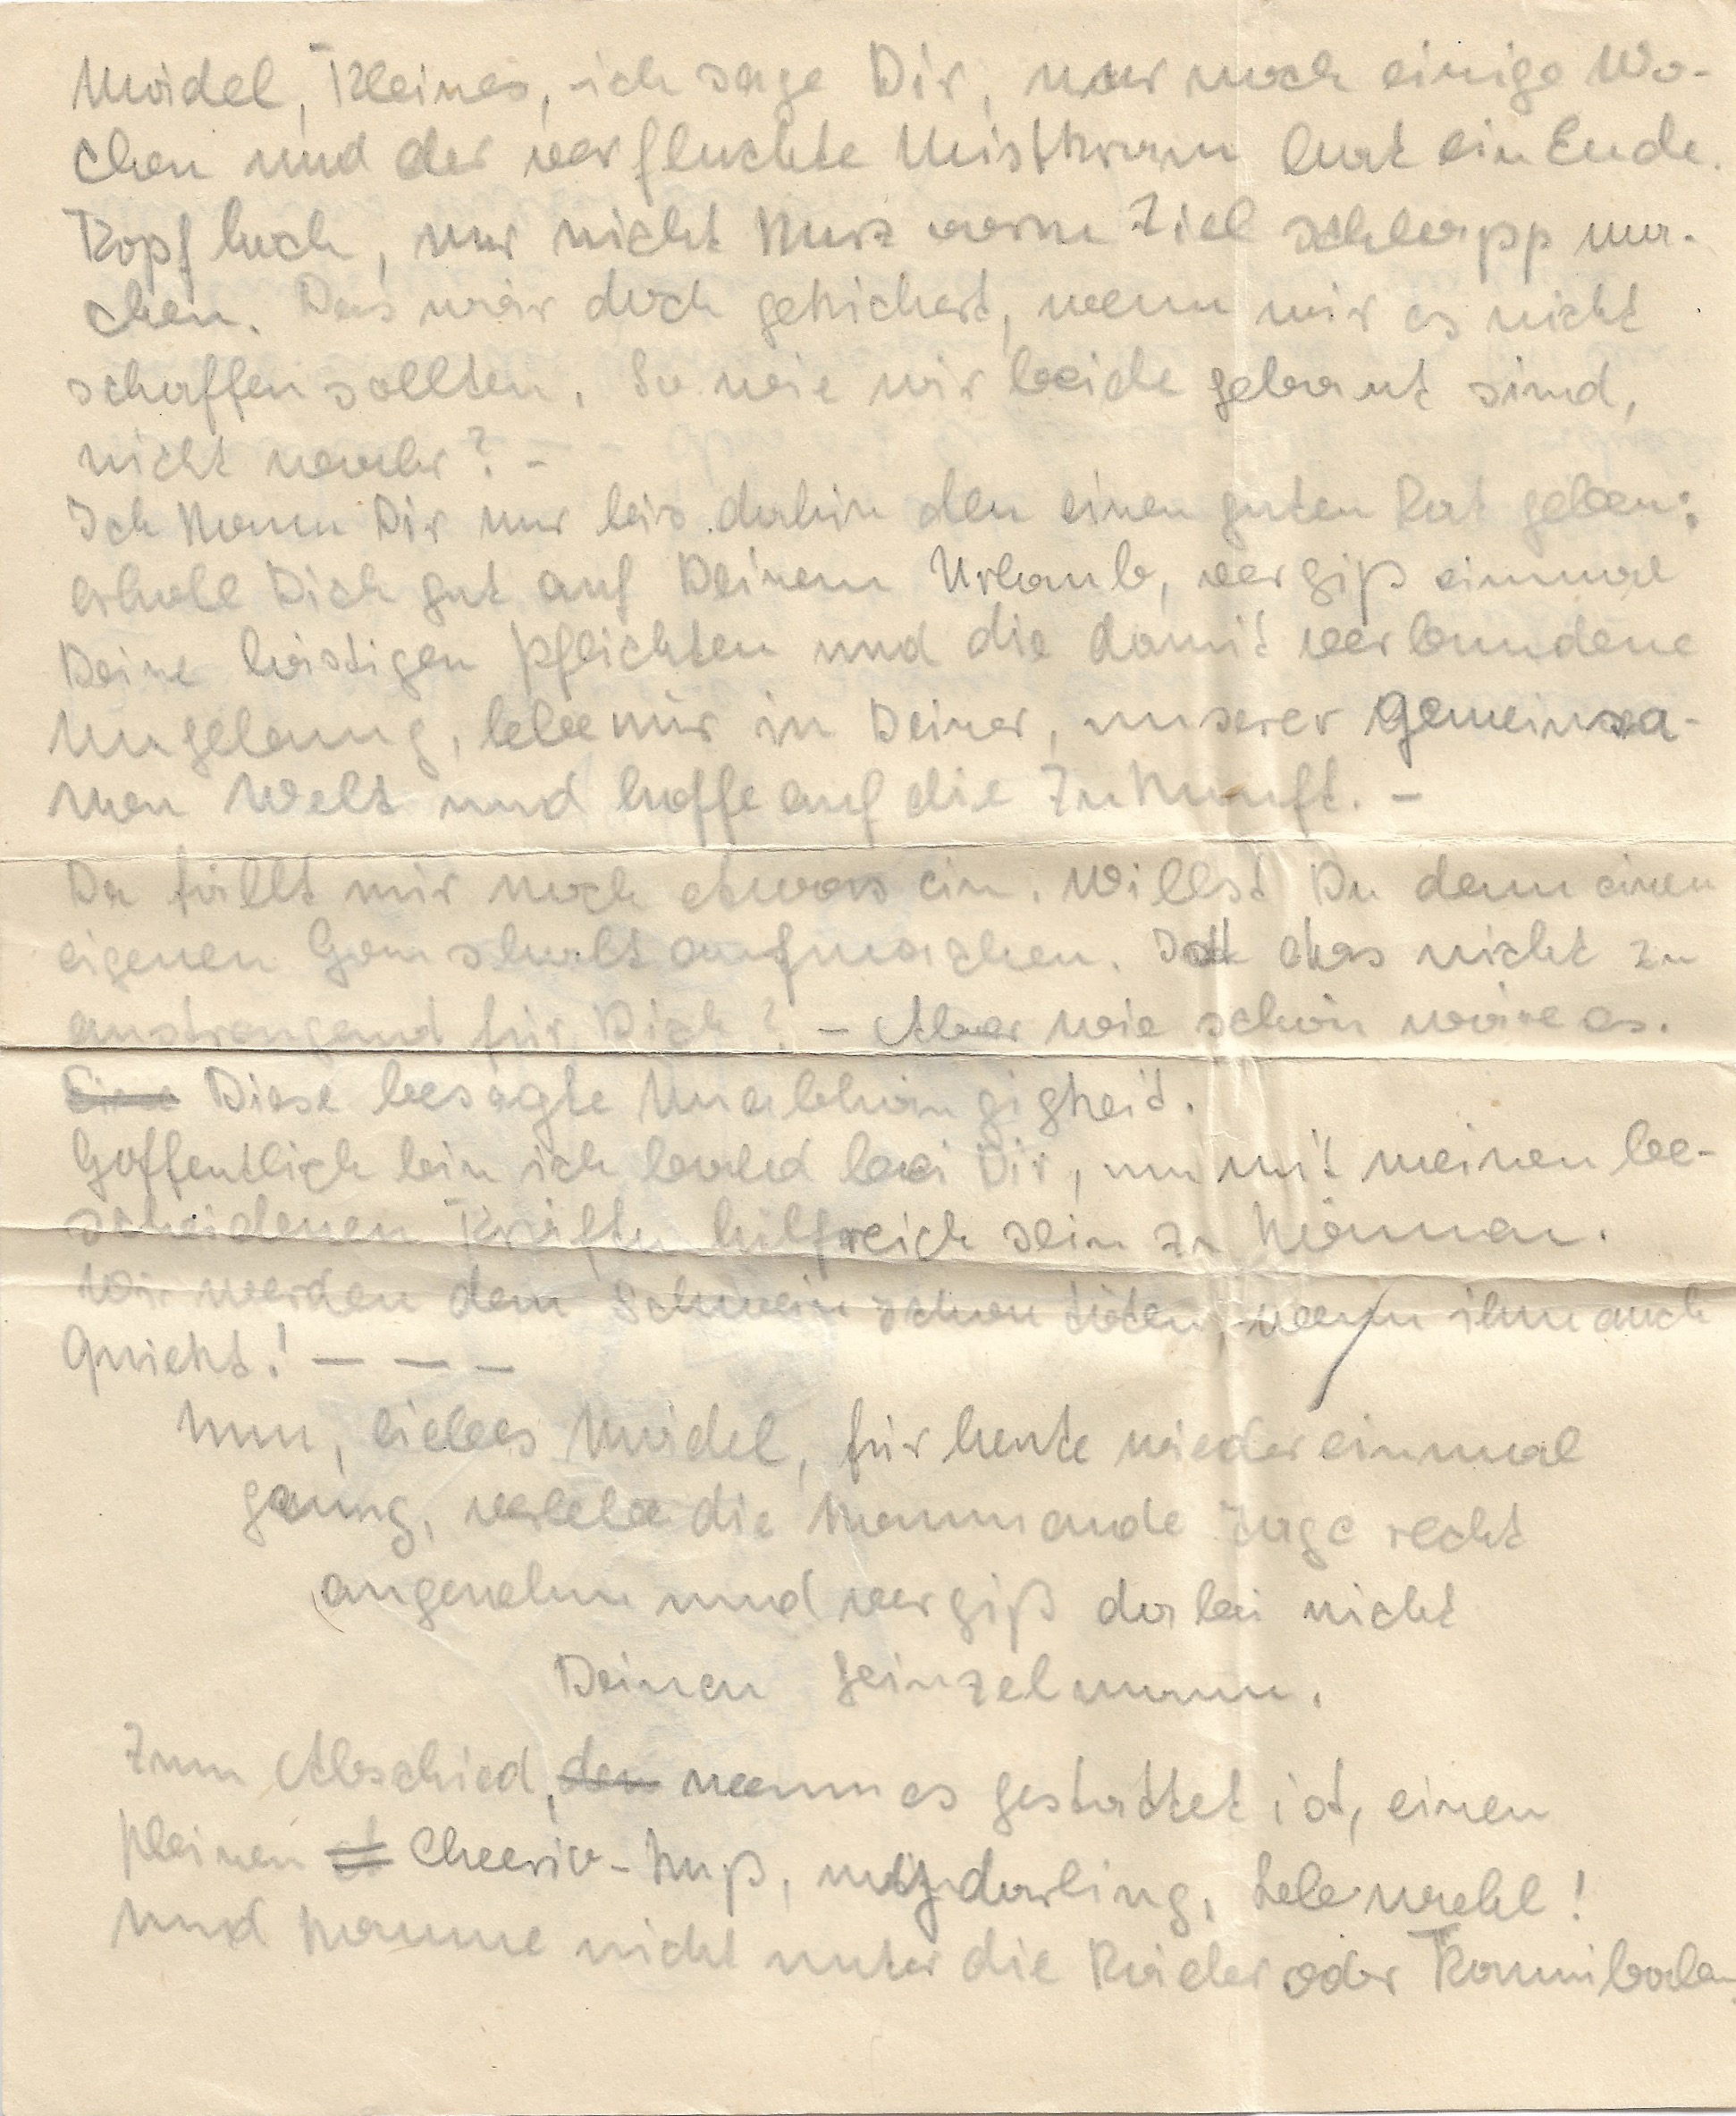 Mädel, Kleines, ich sage Dir, nur noch einige Wo-
chen und der verfluchte Mistkram hat ein Ende.
Kopf hoch, nur nicht kurz vorm Ziel schlapp ma-
chen. Das wär doch gekichert, wenn wir es nicht
schaffen sollten. So wie wir beide gebaut sind,
nicht wahr? -
Ich kann Dir nur bis dahin den einen guten Rat geben:
erhole Dich gut auf Deinem Urlaub, vergiß einmal
Deine lästigen Pflichten und die damit verbundene
Umgebung, lebe nur in Deiner, unserer gemeinsa-
men Welt und hoffe auf die Zukunft. -
Da fällt mir noch etwas ein. Willst Du denn einen
eigenen Haushalt aufmachen. Ist das nicht zu
anstrengend für Dich? - Aber wie schön wäre es.
Eine Diese besagte Unabhängigkeit.
Hoffentlich bin ich bald bei Dir, um mit meinen be-
scheidenen Kräften hilfreich sein zu können.
Wir werden dem Schwein schon töten, wenn ihm auch
quiekt! - - -
Nun, liebes Mädel, für heute wieder einmal
genug, verlebe die kommende Tage recht
angenehm und vergiß dabei nicht
Deinen Heinzelmann.
Zum Abschied, den wenn es gestattet ist, einen
kleinen Cheerio-Kuß, my darling, Lebewohl!
Und komme nicht unter die Räder oder Kannibalen,